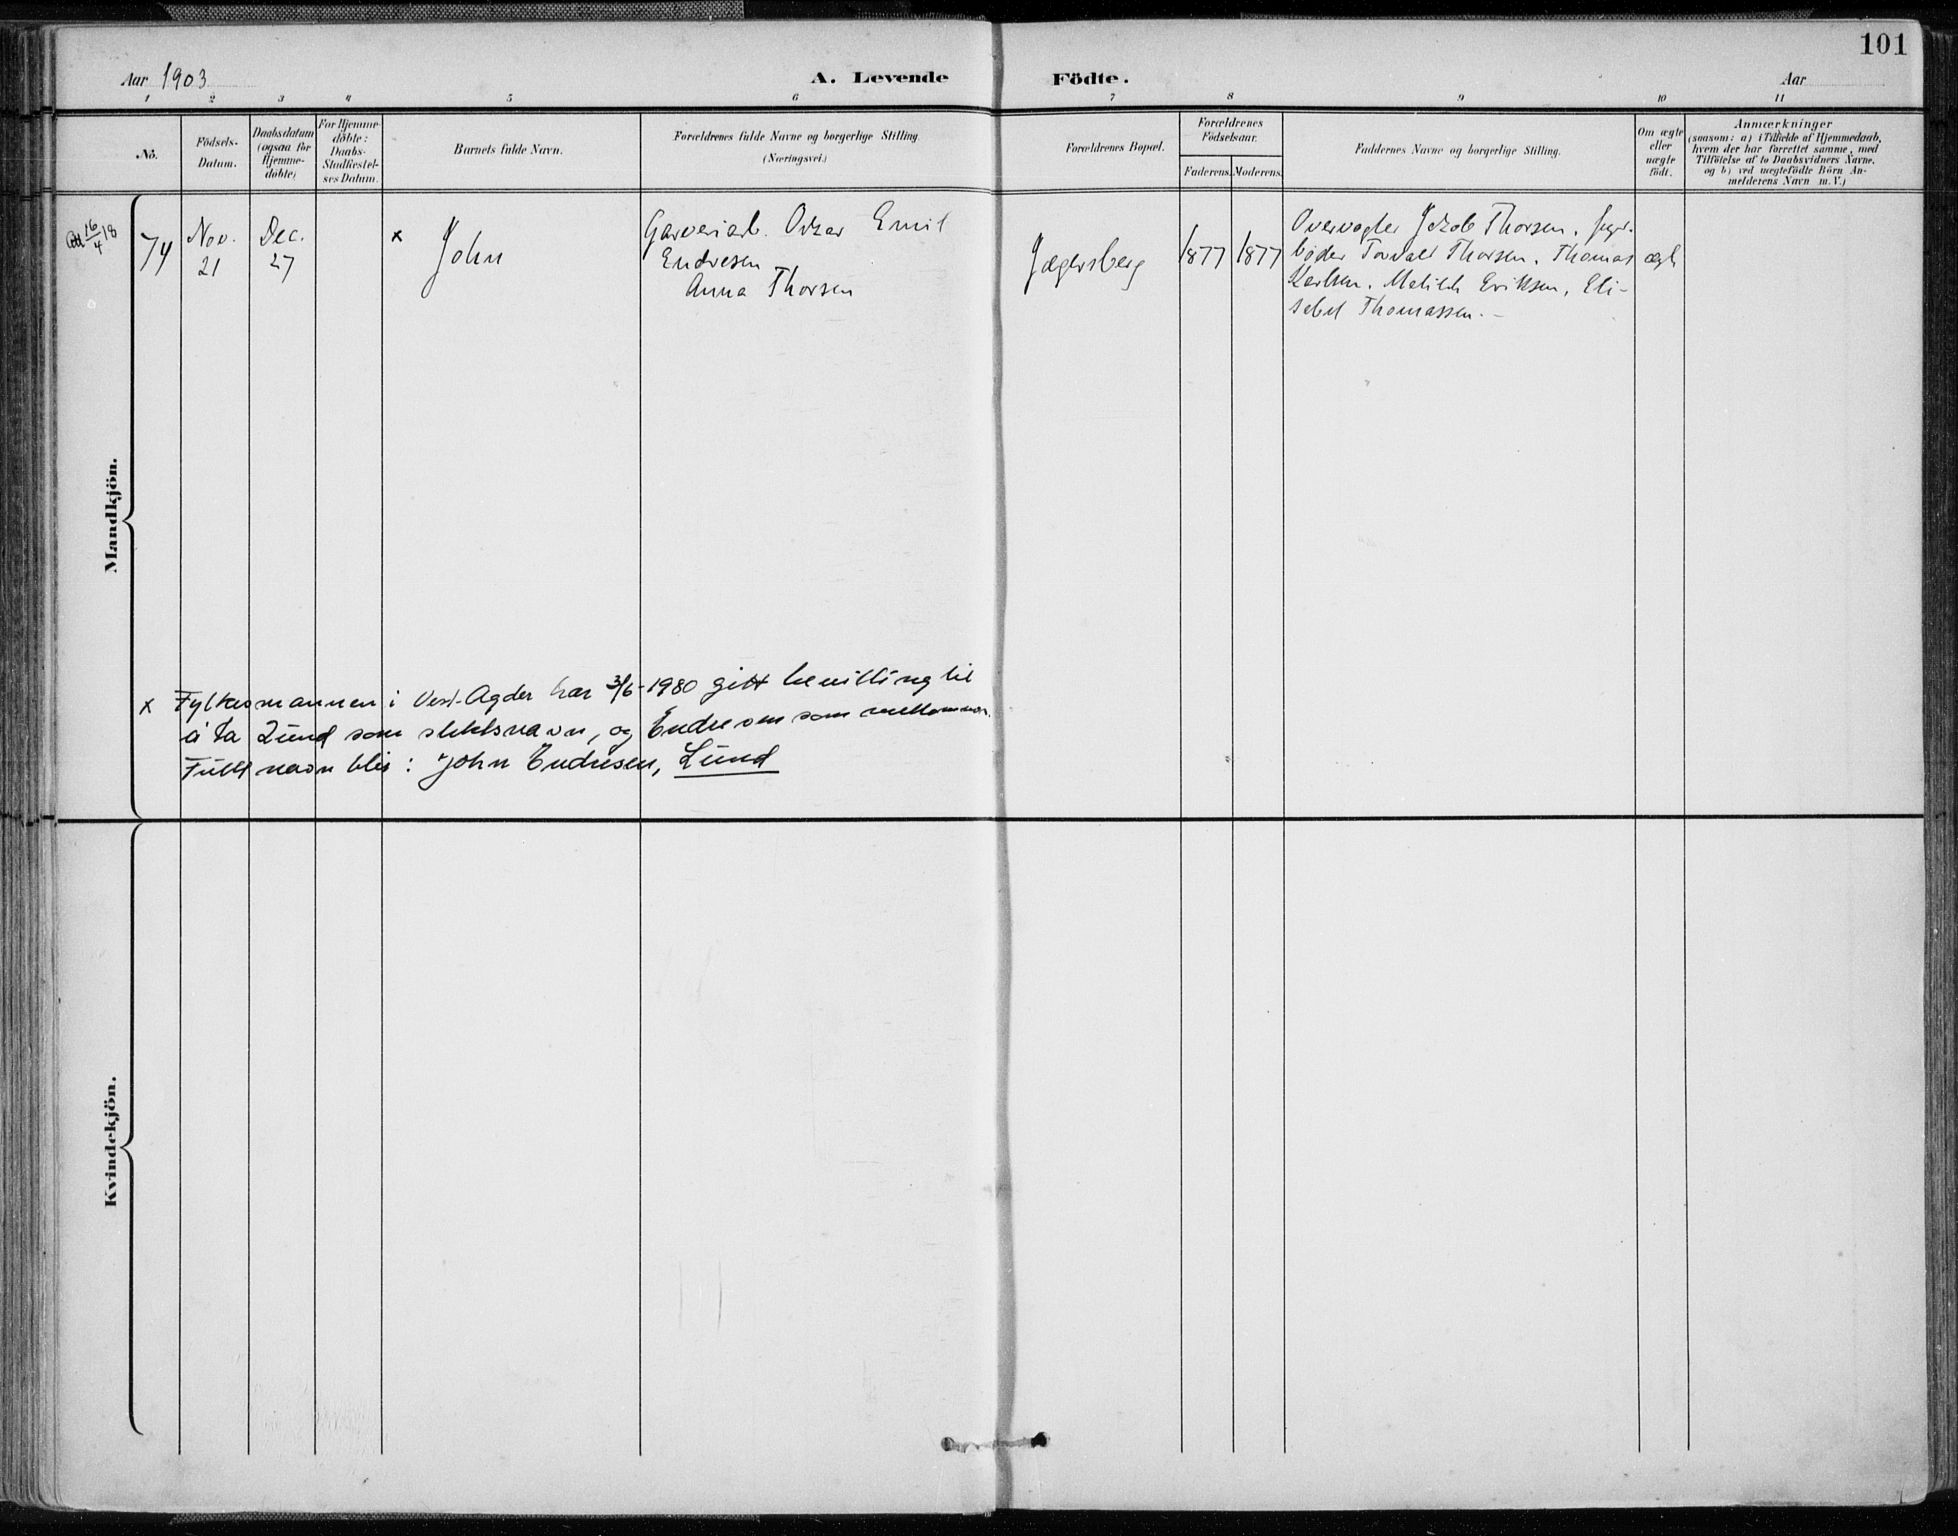 101
Aar 1903 A. Levende Födte. Aar
1 2 3 4 5 6 7 8 9 10 11
No.
Födsels-
Datum.
Daabsdatum
(ogsaa for
Hjemme-
döbte)
For Hjemme-
döbte:
Daabs-
Stadfæstel-
ses Datum.
Barnets fulde Navn.
Forældrenes fulde Navne og borgerlige Stilling.
(Næringsvei.)
Forældrenes Bopæl.
Forældrenes
Födselsaar.
Faderens. Moderens.
Faddernes Navne og borgerlige Stilling.
Om ægte
eller
uægte
födt.
Anmærkninger
(saasom: a) i Tilfælde af Hjemmedaab,
hvem der har forrettet samme, med
Tilföielse af to Daabsvidners Navne,
og b) ved uægtefödte Börn An-
melderens Navn m.V.)
Mandkjön.
16/4 18
74
Nov.
21
Dec.
27
x
John
Garveriarb. Oskar Emil
Endresen
Anna Thorsen
Jægersberg
1877 1877
Overvogter Jakob Thorsen,
bøder Torvald Thorsen, Thomas
Karlsen, Matilde Eriksen, Eli-
sabet Thomassen.-
ægte
x Fylkesmannen i Vest-Agder har 3/6-1980 gitt bevilling til
å ta Lund som slektsnavn, og Endresen som mellomnavn.
Fullt navn blir: John Endresen, Lund
Kvindekjön.